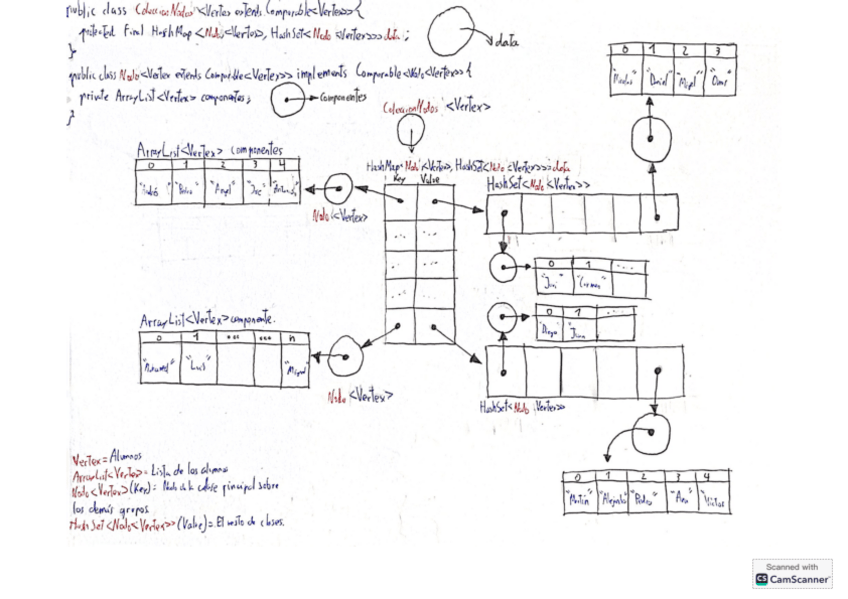 public class ColeccionNodos <Vertex extends Comparable<Vertex>>{
protected final HashMap <Nodo<Vertex>, HashSet<Nodo <Vertex>>> data;
}
data
public class Nodo<Vertex extends Comparable<Vertex>> implements Comparable<Nodo<Vertex>>{
private ArrayList<Vertex> componentes;
componentes
}
ColeccionNodos <Vertex>
0 1 2 3
"Daniel" "Miguel"
ArrayList<Vertex> componentes
0 1 2 3 4
"Pedro" "Angel"
Nodo <Vertex>
HashMap<Nodo <Vertex>, HashSet<Nodo <Vertex>>> data
Key Value
HashSet<Nodo <Vertex>>
0 1 ....
"Carmen"
0 1 ...
"Juan"
ArrayList<Vertex> componente.
0 1 ... ... n
"Mohamed" "Luis" "Miguel"
Nodo <Vertex>
HashSet<Nodo Vertex>>
0 1 2 3 4
"Martín" "Alejandro" "Pedro" "Ana" "Victor"
Vertex = Alumnos
ArrayList<Vertex> = Lista de los alumnos
Nodo <Vertex> (Key) = Nodo de la clase principal sobre
los demás grupos.
HashSet <Nodo<Vertex>> (Value) = El resto de clases.
Scanned with
CS CamScanner